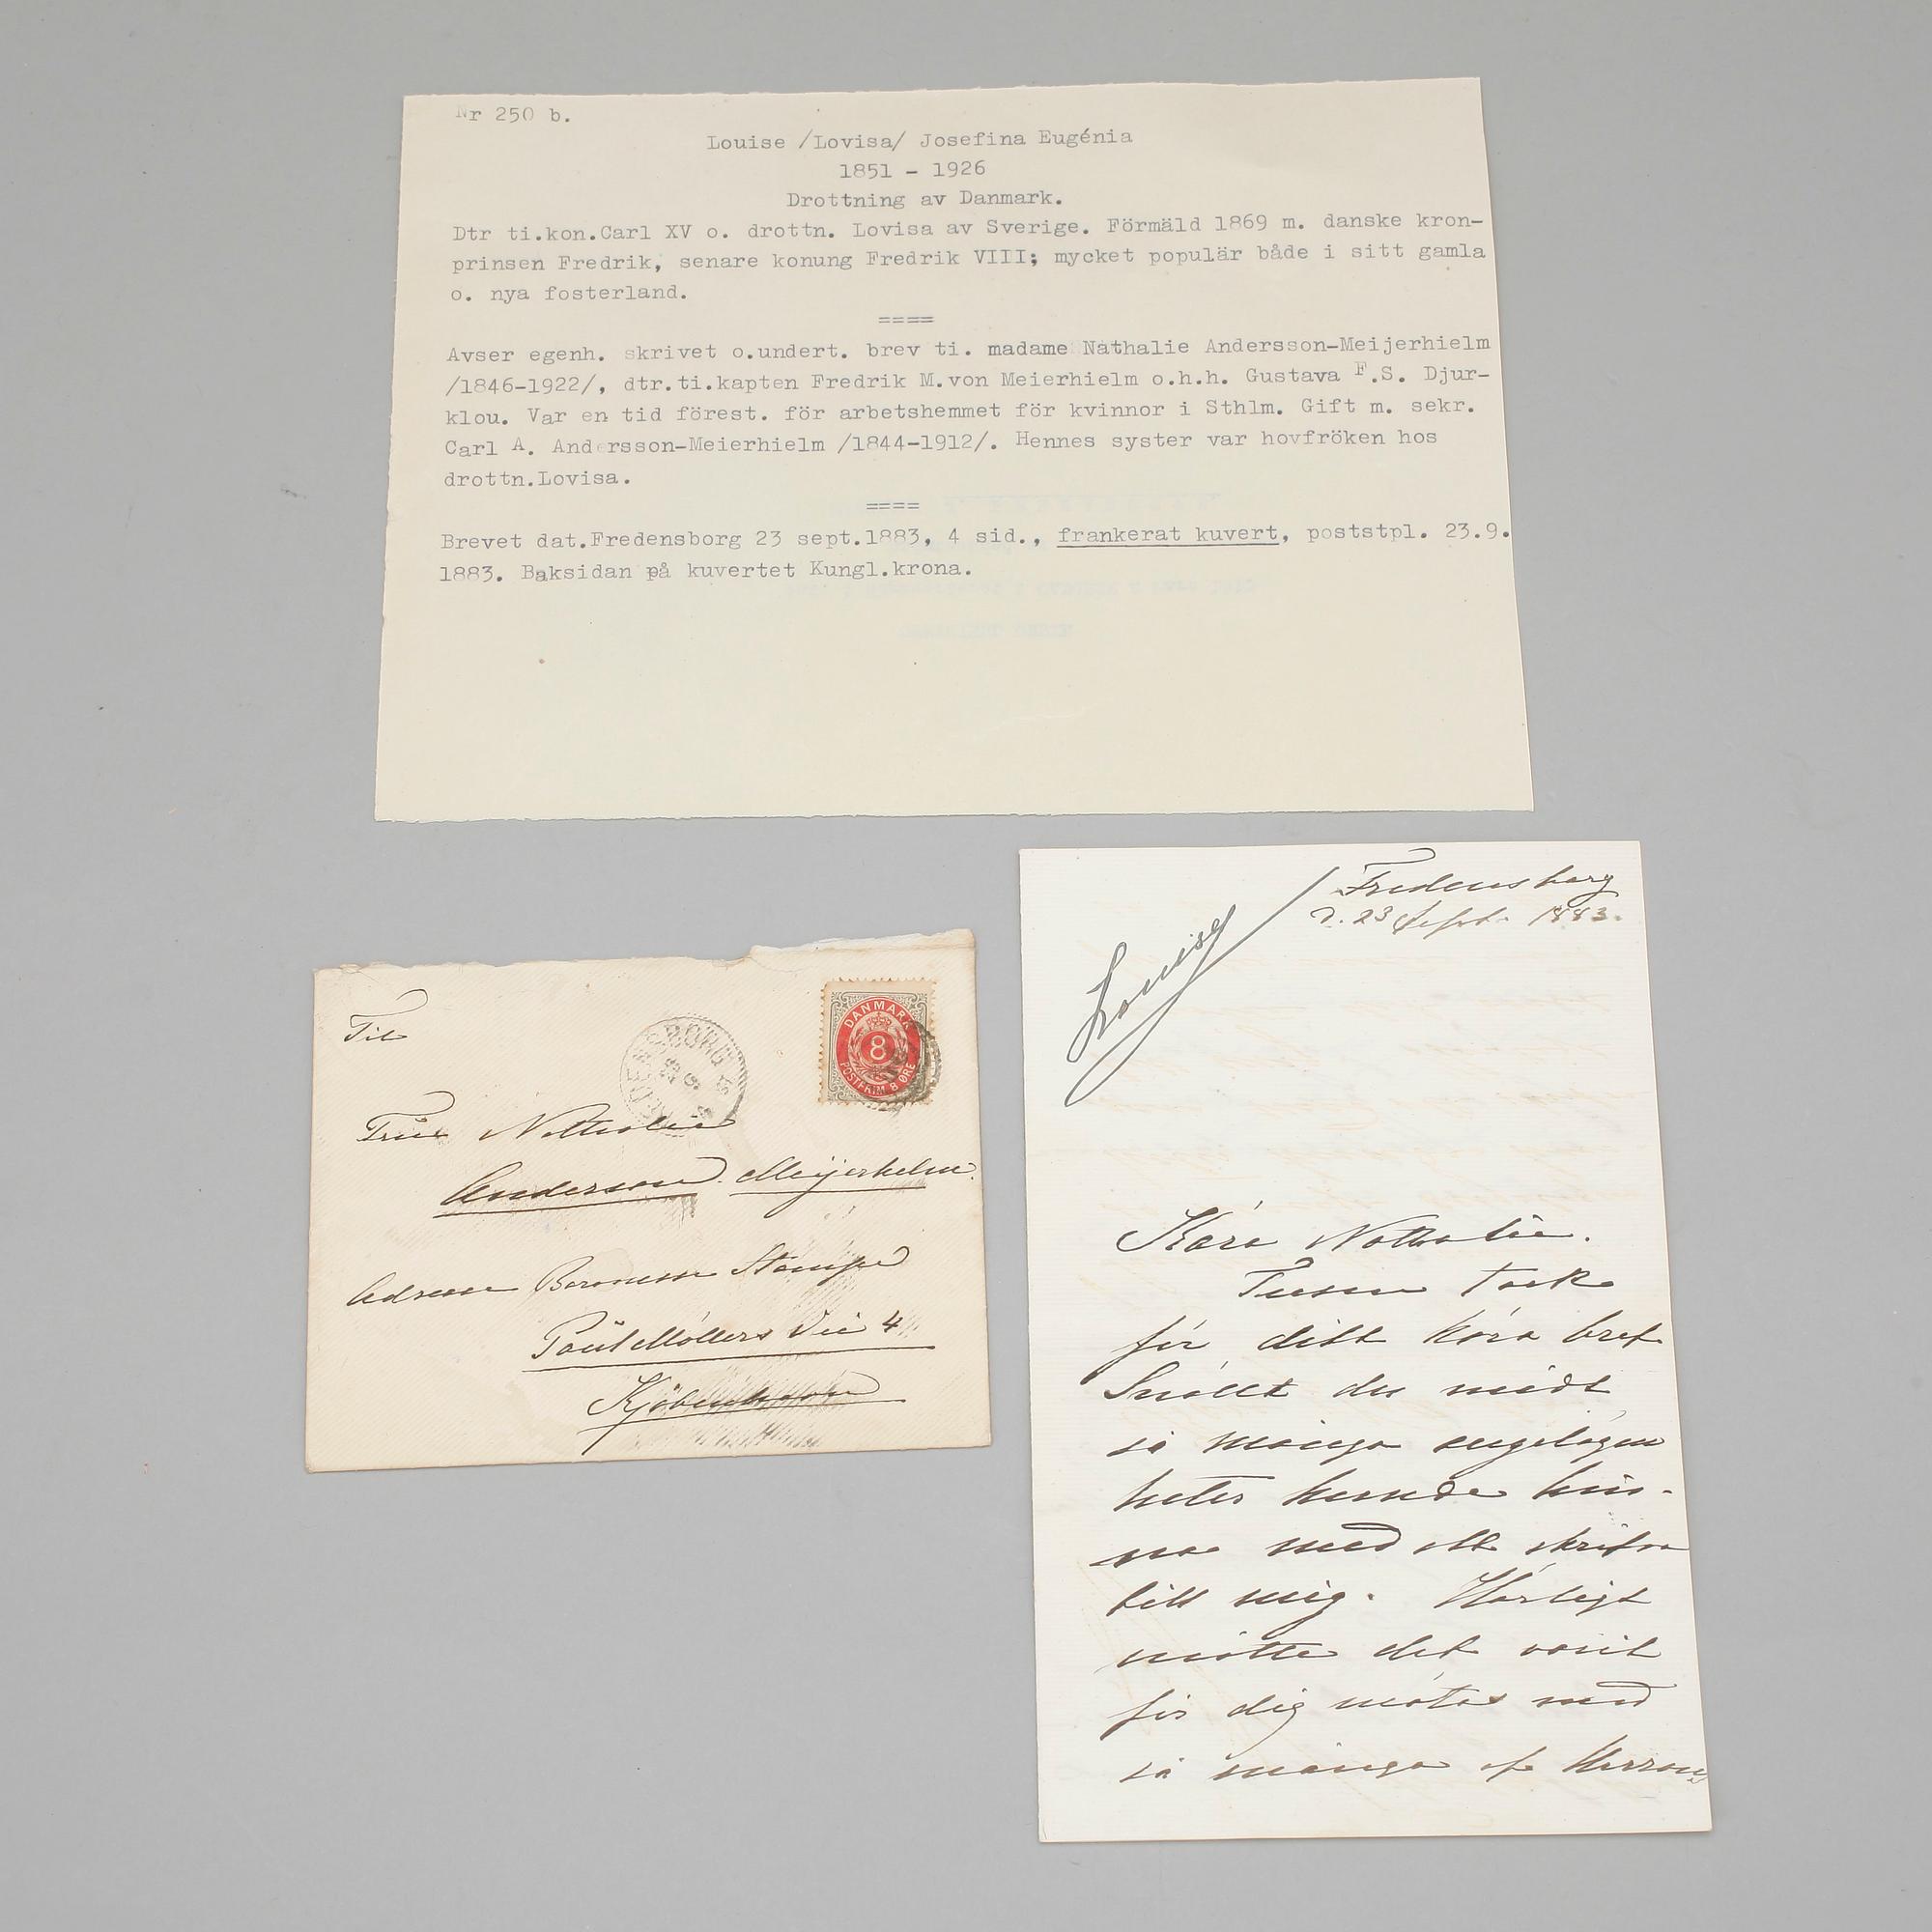 Nr 250 b.
Louise /Lovisa/ Josefina Eugénia
1851 - 1926
Drottning av Danmark.
Dtr ti.kon.Carl XV o. drottn. Lovisa av Sverige. Förmäld 1869 m. danske kron-
prinsen Fredrik, senare konung Fredrik VIII; mycket populär både i sitt gamla
o. nya fosterland.
====
Avser egenh. skrivet o.undert. brev ti. madame Nathalie Andersson-Meijerhielm
/1846-1922/, dtr.ti.kapten Fredrik M.von Meierhielm o.h.h. Gustava F.S. Djur-
klou. Var en tid förest. för arbetshemmet för kvinnor i Sthlm. Gift m. sekr.
Carl A. Andersson-Meierhielm /1844-1912/. Hennes syster var hovfröken hos
drottn.Lovisa.
====
Brevet dat.Fredensborg 23 sept.1883, 4 sid., frankerat kuvert, poststpl. 23.9.
1883. Baksidan på kuvertet Kungl.krona.
Til
DANMARK
8
POSTFRIM 8 ØRE
Fru Nathalie
Anderson. Meijerhelm.
Adresse Baronesse Stampe
Poul Møllers Vei 4
Kjöbenhavn
Fredensborg
d. 23 Sept. 1883.
Louise
Kära Nathalie.
Tusen tack
för ditt kära bref
Snällt du midt
så många angelägen
heter kunde hin-
na med att skrifva
till mig. Härligt
måtte det varit
för dig mötas med
så många af Herrens